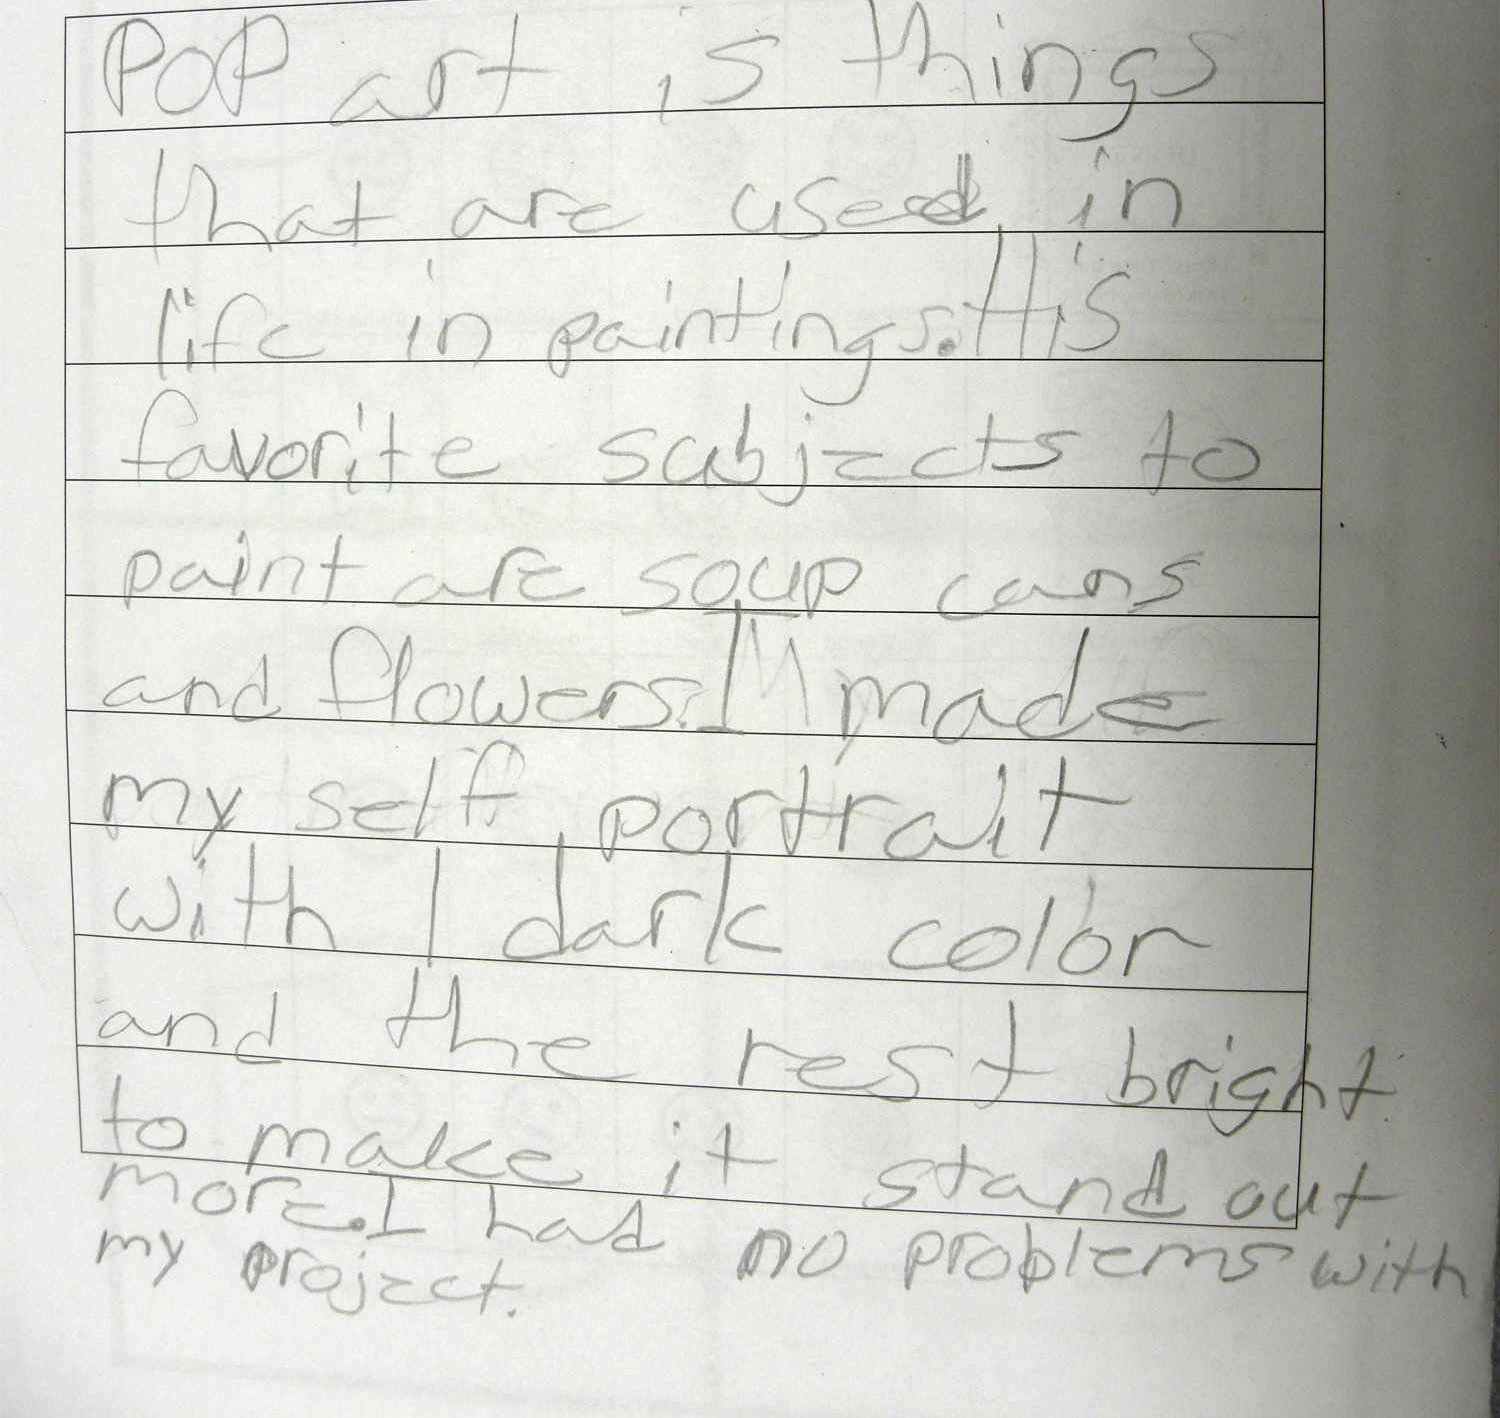 POP art is things
that are used in
life in paintings. His
favorite subjects to
paint are soup cans
and flowers. I made
my self portrait
with 1 dark color
and the rest bright
to make it stand out
more. I had no problems with
my project.